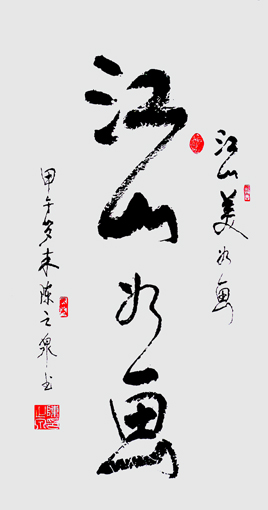 江山美如画
江山如画
甲午岁末陈之泉书